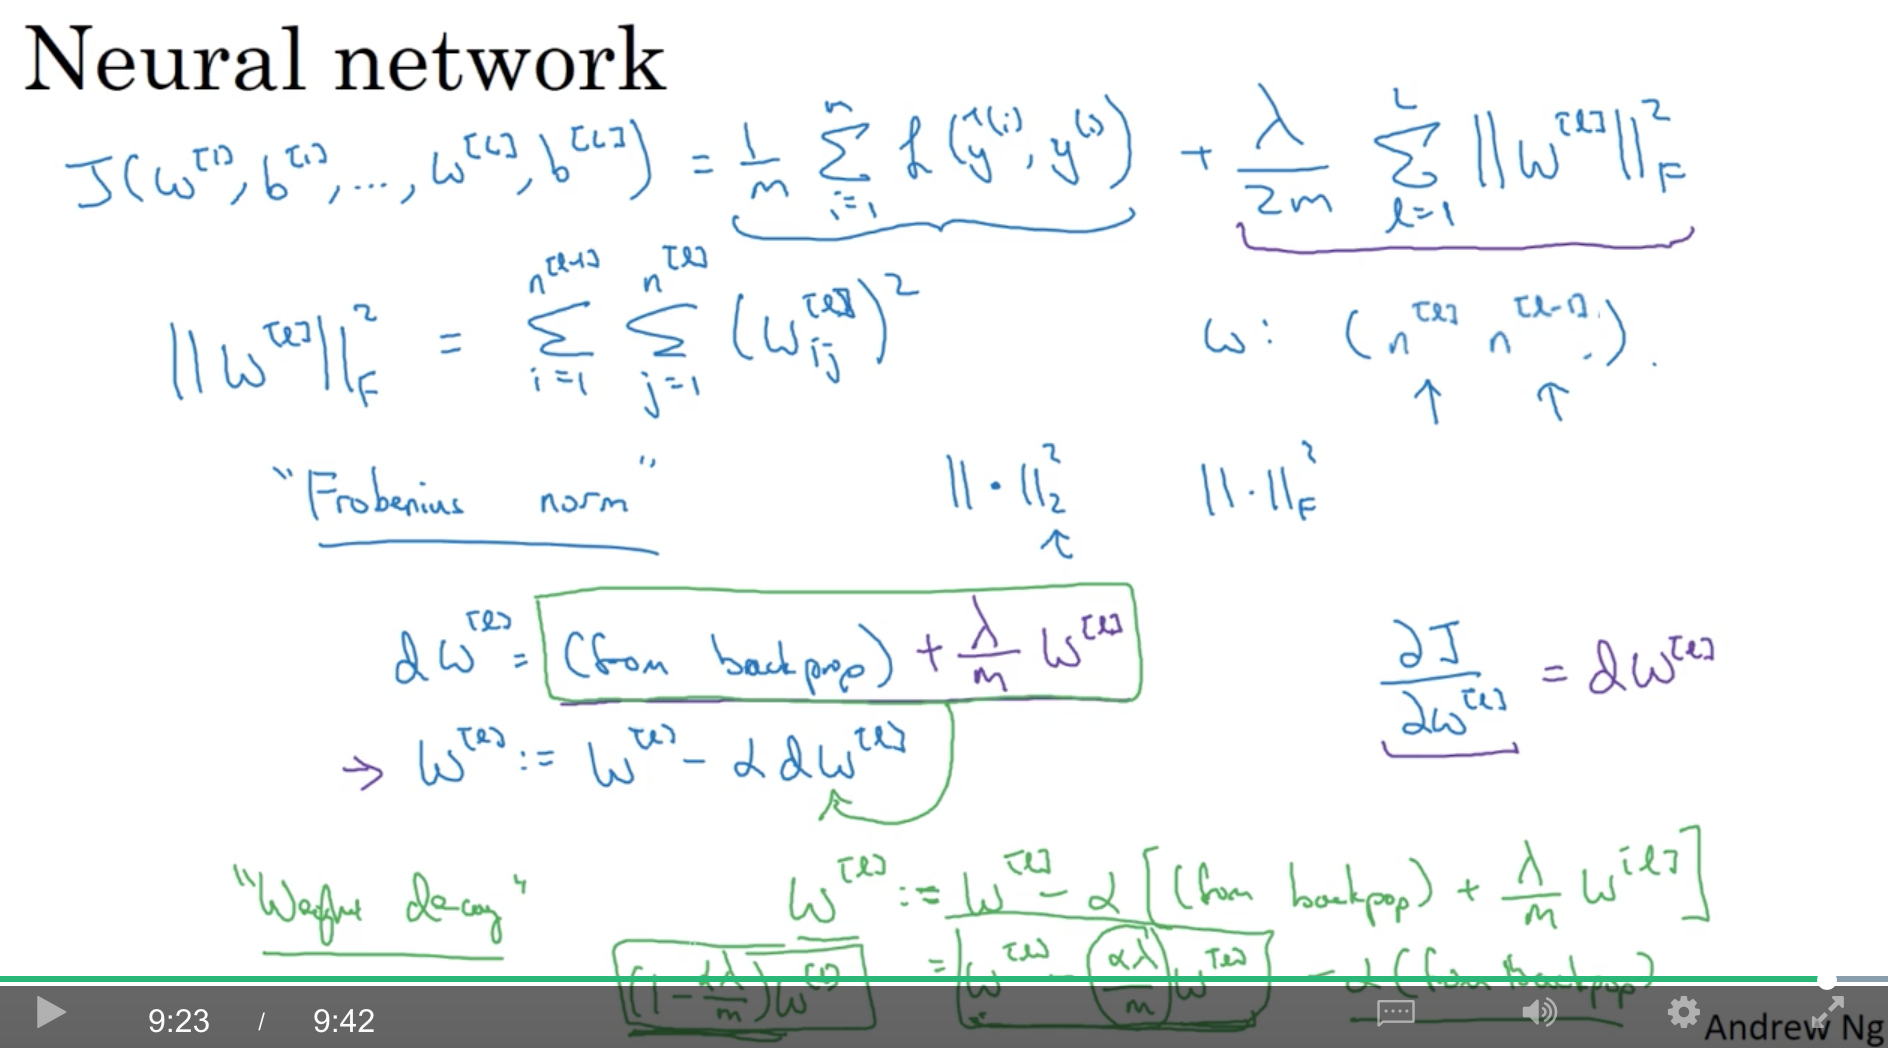 Neural network
J(w^[1], b^[1], ..., w^[L], b^[L]) = 1/m ∑_{i=1}^{m} ℒ(ŷ^(i), y^(i)) + λ/2m ∑_{l=1}^{L} ||w^[l]||²_F
||w^[l]||²_F = ∑_{i=1}^{n^[l-1]} ∑_{j=1}^{n^[l]} (w_ij^[l])² w: (n^[l] n^[l-1]).
"Frobenius norm" ||·||²_2 ||·||²_F
dw^[l] = (from backprop) + λ/m w^[l] ∂J/∂w^[l] = dw^[l]
→ w^[l] := w^[l] - α dw^[l]
"Weight decay" w^[l] := w^[l] - α [(from backpop) + λ/m w^[l]]
(1 - αλ/m) w^[l] = w^[l] - αλ/m w^[l] - α (from backpop)
9:23 / 9:42
Andrew Ng